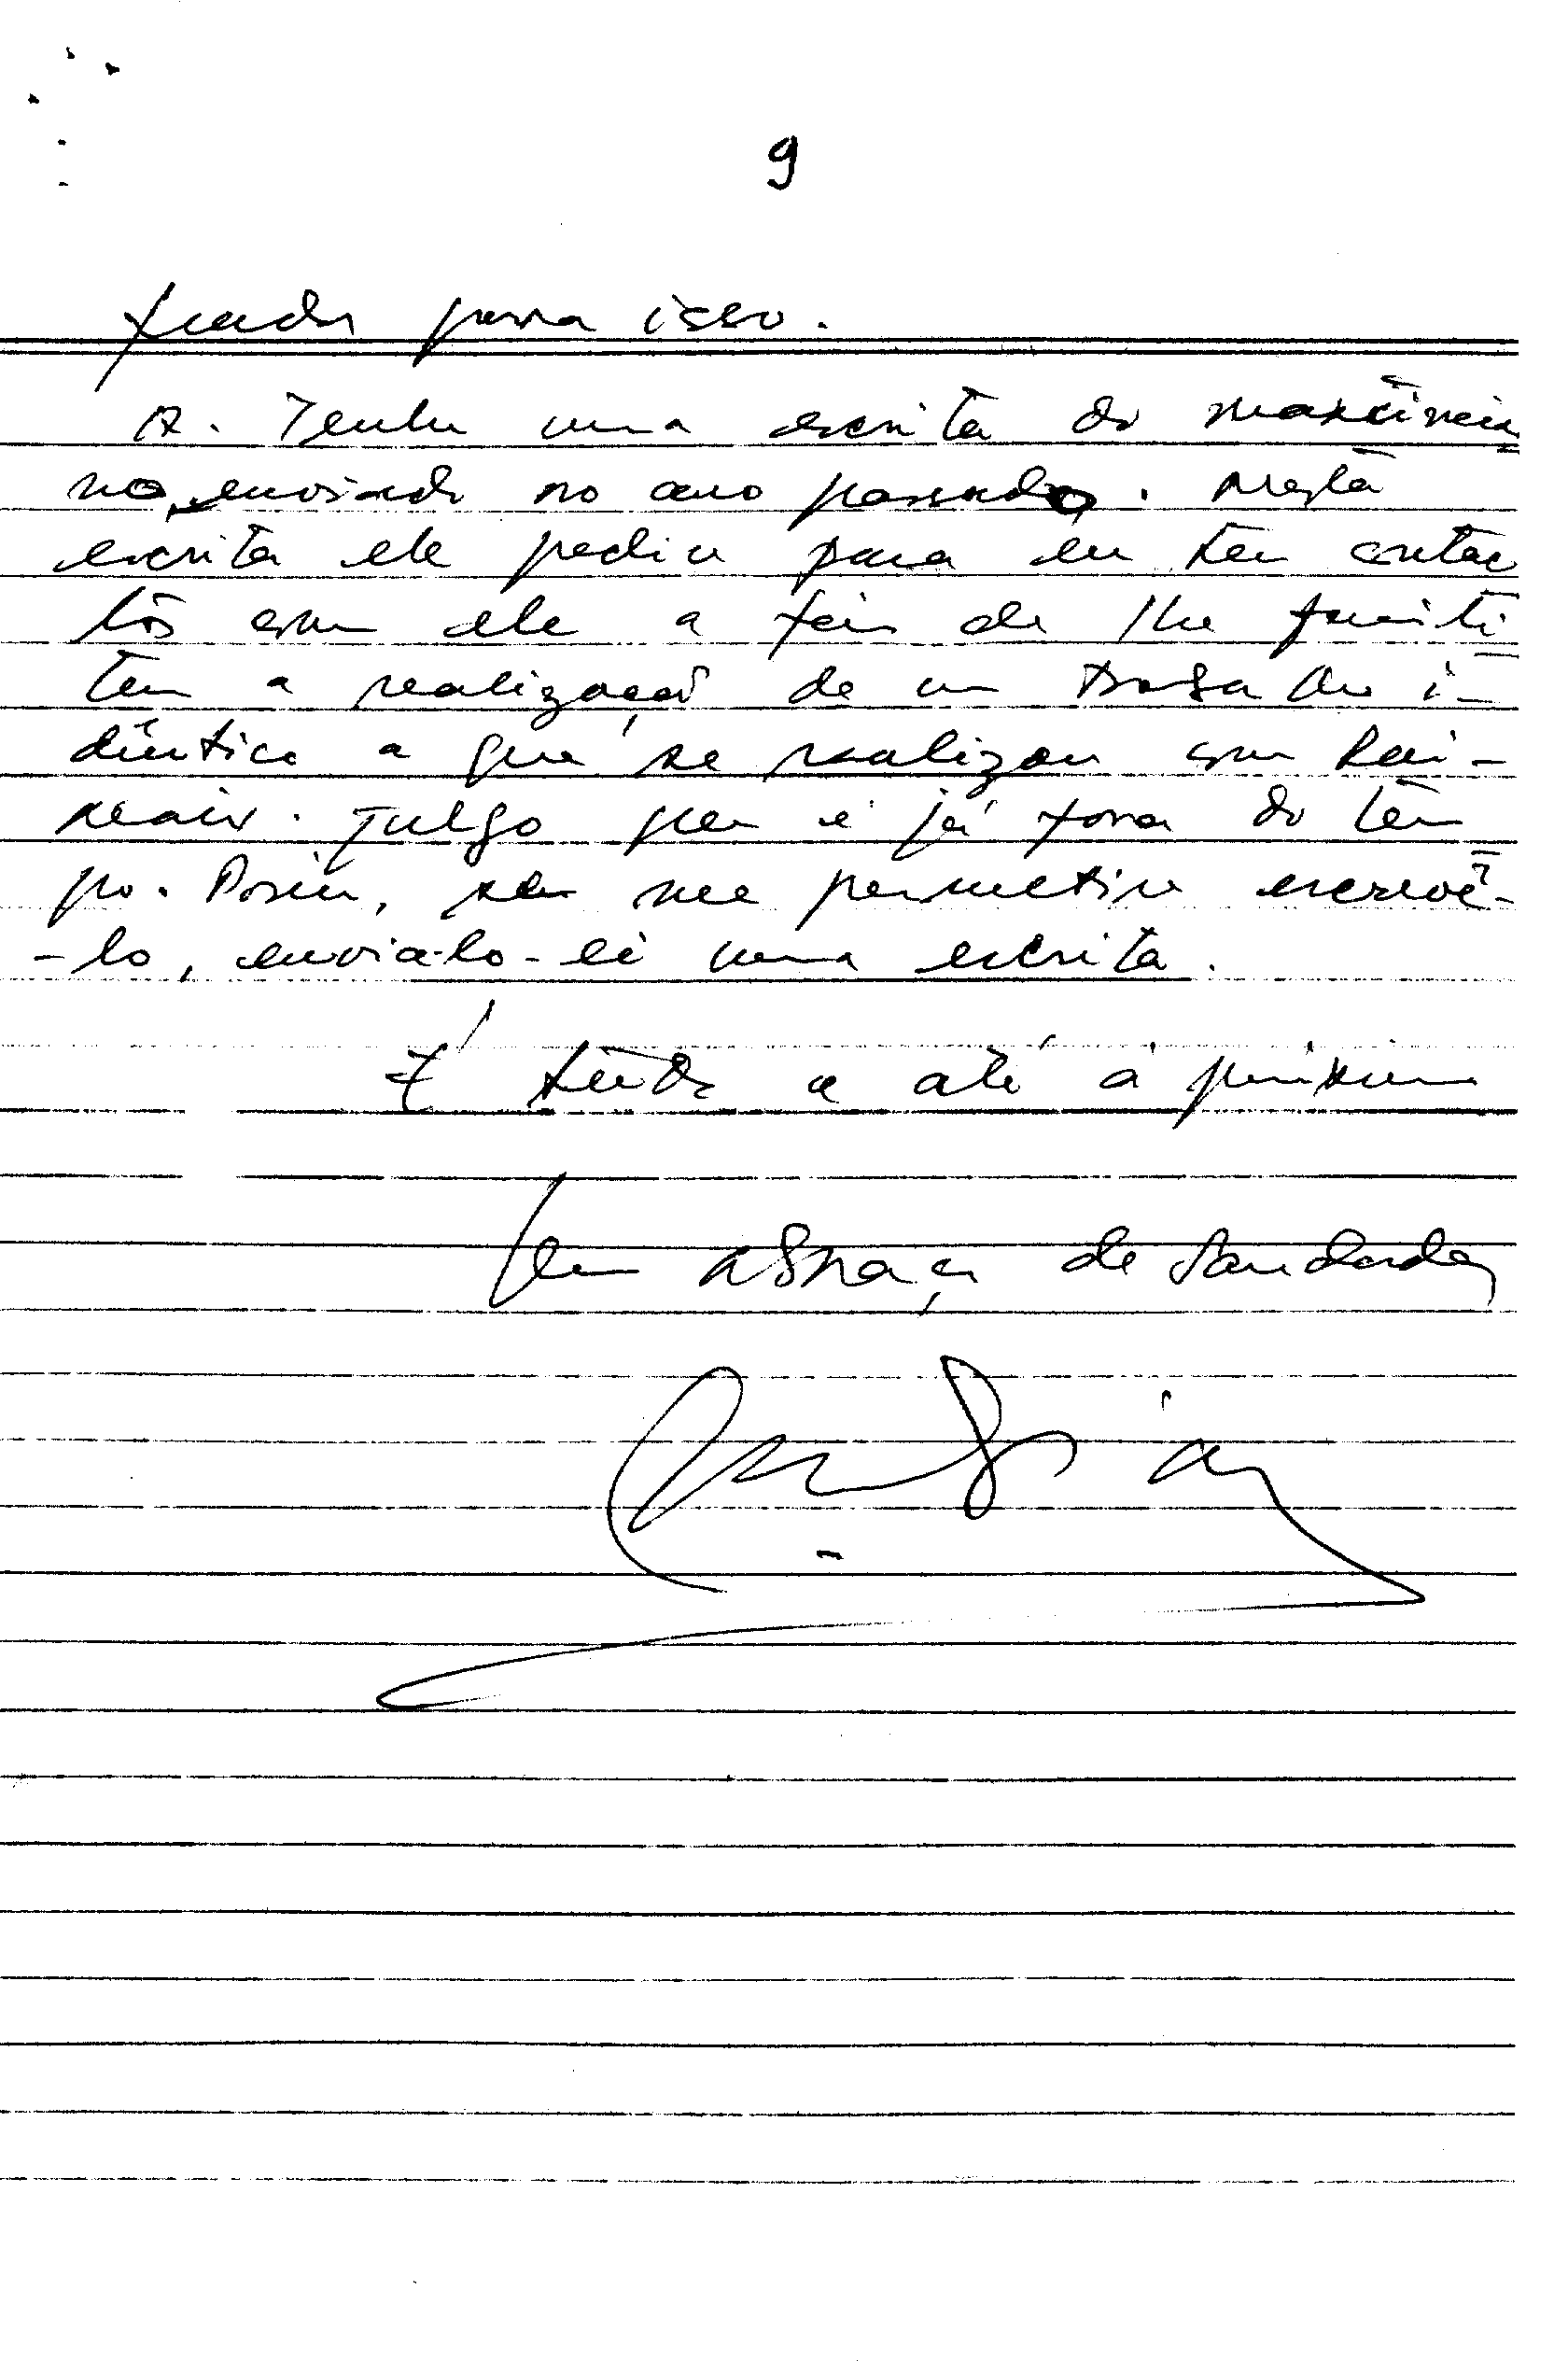 9
para isso.
A. Tenho uma escrita do
no, enviado no ano passado. Nesta
escrita ele pediu para eu ter contac
tos com ele a fim de lhe
ter a realização de um trabalho i-
dêntico a que se realizou com
Julgo que é já fora do tem
po. Porém, se me permetir escrevê-
-lo, envia-lo-ei uma escrita.
É tudo e até à próxima
Um abraço de saudades